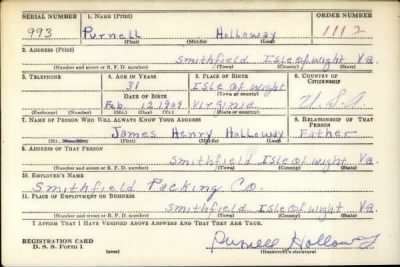 SERIAL NUMBER 1. NAME (Print) ORDER NUMBER
993 Purnell Holloway 1112
(First) (Middle) (Last)
2. ADDRESS (Print)
Smithfield Isle of Wight Va.
(Number and street or R. F. D. number) (Town) (County) (State)
3. TELEPHONE 4. AGE IN YEARS 5. PLACE OF BIRTH 6. COUNTRY OF CITIZENSHIP
31 Isle of Wight
DATE OF BIRTH (Town or county)
Feb. 12 1909 Virginia U.S.A.
(Exchange) (Number) (Mo.) (Day) (Yr.) (State or country)
7. NAME OF PERSON WHO WILL ALWAYS KNOW YOUR ADDRESS 8. RELATIONSHIP OF THAT PERSON
James Henry Holloway Father
(First) (Middle) (Last)
9. ADDRESS OF THAT PERSON
Smithfield Isle of Wight Va.
(Number and street or R. F. D. number) (Town) (County) (State)
10. EMPLOYER'S NAME
Smithfield Packing Co.
11. PLACE OF EMPLOYMENT OR BUSINESS
Smithfield Isle of Wight Va.
(Number and street or R. F. D. number) (Town) (County) (State)
I AFFIRM THAT I HAVE VERIFIED ABOVE ANSWERS AND THAT THEY ARE TRUE.
REGISTRATION CARD
D. S. S. FORM 1 (over) Purnell Holloway
(Registrant's signature)